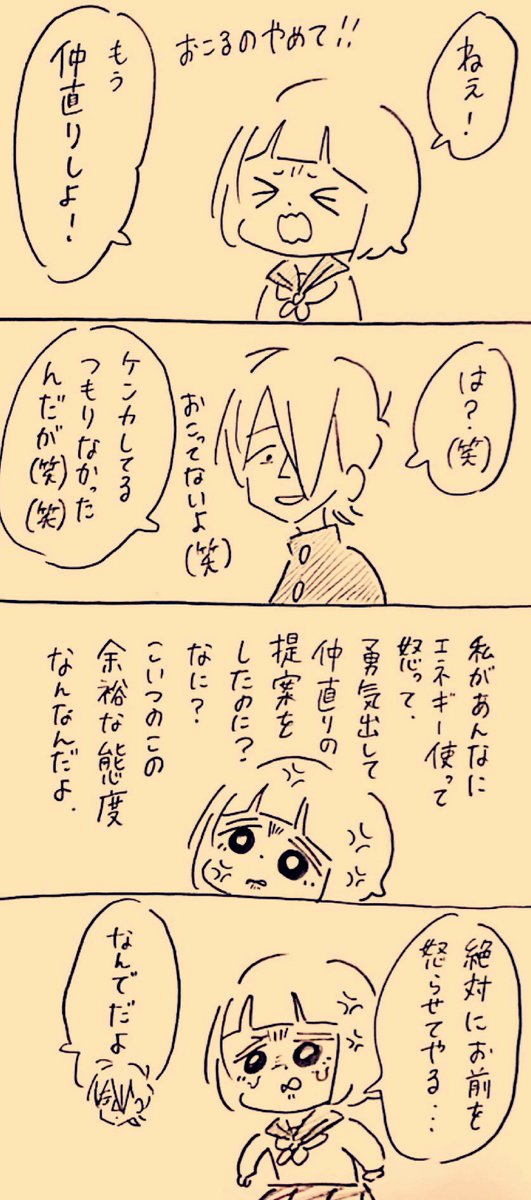 ねえ！
おこるのやめて！！
もう
仲直りしよ！
は？(笑)
おこってないよ(笑)
ケンカしてる
つもりなかった
んだが(笑)(笑)
私があんなに
エネギー使って
怒って、
勇気出して
仲直りの
提案を
したのに？
なに？
こいつのこの
余裕な態度
なんなんだよ.
絶対にお前を
怒らせてやる…
なんでだよ